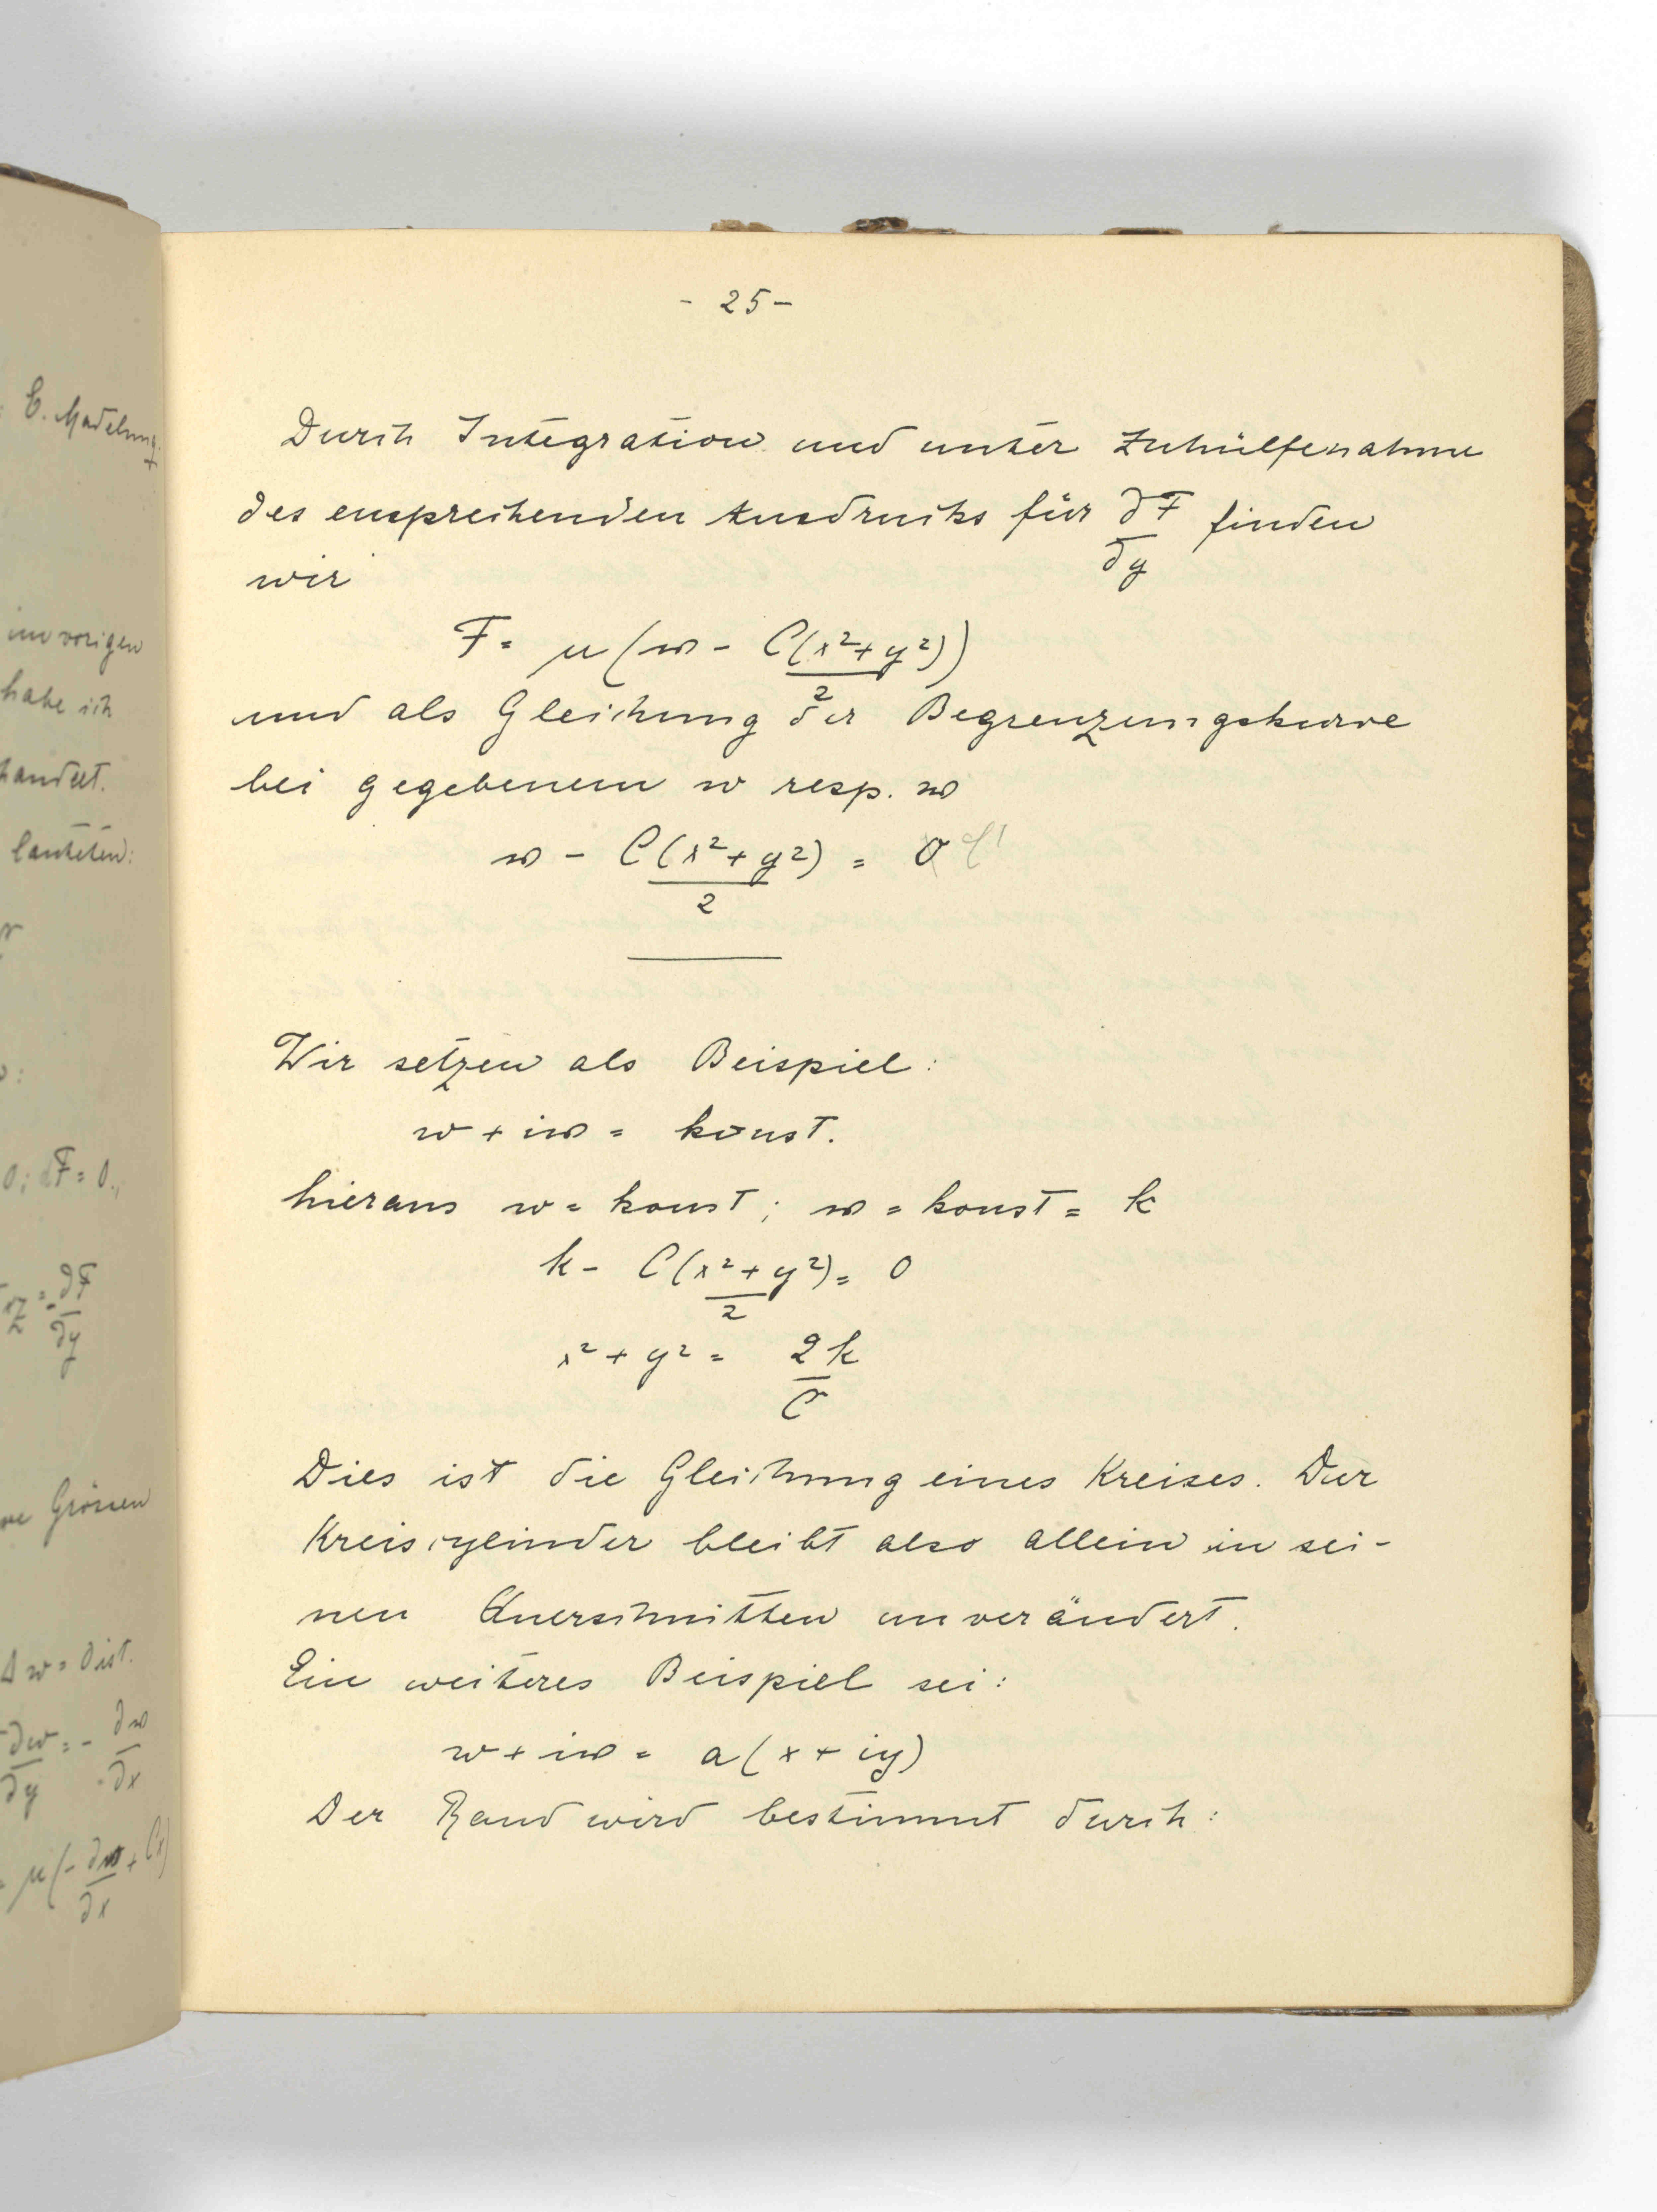 E. Madelung.
im vorigen
habe ich
handelt.
lauteten:
0; dF = 0.,
= ∂F
∂y
Grössen
Δ w = 0 ist.
∂w = - ∂𝔴
∂y ∂x
μ(- ∂𝔴 + Cx)
∂x
- 25 -
Durch Integration und unter Zuhülfenahme
des ensprechenden Ausdrucks für ∂F finden
∂y
wir
F = μ (𝔴 - C(x² + y²))
2
und als Gleichung der Begrenzungskurve
bei gegebenem w resp. 𝔴
𝔴 - C(x² + y²) = 0 C'
2
Wir setzen als Beispiel:
w + i𝔴 = konst.
hieraus w = konst; 𝔴 = konst = k
k - C(x² + y²) = 0
2
x² + y² = 2k
C
Dies ist die Gleichung eines Kreises. Der
Kreiscylinder bleibt also allein in sei-
nen Querschnitten unverändert.
Ein weiteres Beispiel sei:
w + i𝔴 = a(x + iy)
Der Rand wird bestimmt durch: